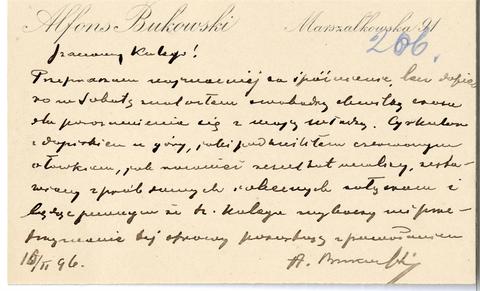 Alfons Bukowski Marszałkowska 91
206.
Szanowny Kolego!
Przepraszam najmocniej za spóźnienie, lecz dopie-
ro w Sobotę znalazłem swobodną chwilkę czasu
dla porozumienia się z moją władzą. Cyrkularz
z dopiskiem u góry, jaki podkreśliłem czerwonym
ołówkiem, jak również rezultat analizy, zesta-
wiony z prób dawnych i obecnych załączam i
będąc pewnym że Sz. Kolega wybaczy mi prze-
trzymanie tej sprawy pozostaję z poważaniem
/II 96. A. Bukowski